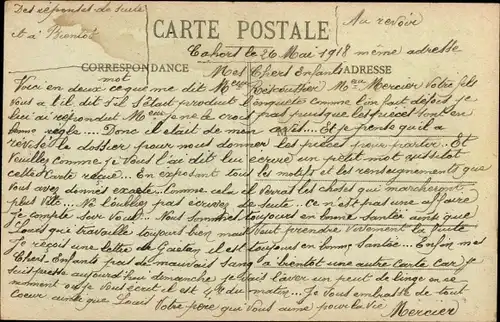 Des reponses de suite
et à Bientot
Au revoir
CARTE POSTALE
Cahors le 26 Mai 1918 même adresse
CORRESPONDANCE
ADRESSE
Mes Chers Enfants
Voici en deux mot ce que me dit Mr Mercier Votre fils
Vous a l'il dit s'il s'était produit l'enquête comme l'on fait defois je
lui ai repondut Mr je ne crois pas puisque les pièces sont en
bonne règle.... Donc il était de mon avis.... Et je pense qu'il a
le dossier pour nous donner les pièces pour partir.. Et
Veuillez comme je Vous l'ai dit lui ecrire un petit mot aussitot
cette Carte reçue... En exposant tous les motifs et les renseignements que
Vous avez comme cela il Verat les choses qui marcheront
plus Vite... Ne l'oubliez pas ecrivez de suite.. ce n'est pas une affaire
Je compte sur Vous.. Nous sommes toujours en bonne Santée ainsi que
Louis qui travaille toujours bien mais faut prendre
Je reçois une lettre de Gaetan il est toujours en bonne Santée... Enfin mes
Chers Enfants pas de mauvais Sang a bientot une autre Carte Car je
suis aujourd'hui dimanche je vais laver un peut de linge en se
moment ou je Vous écrit il est 4h du matin... Je Vous embrasse de tout
Coeur ainsi que Louis Votre père qui Vous aime pour la Vie
Mercier